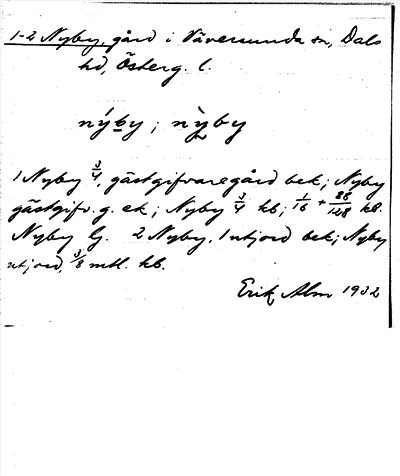 1-2 Nyby, gård i Väversunda sn, Dals
hd, Österg. l.
nýby; nỳby
1 Nyby 3/4, gästgifvaregård bek; Nyby
gästgifv. g. ek; Nyby 3/4 kb; 1/16 + 88/128 kb.
Nyby G. 2 Nyby, 1 utjord bek; Nyby
utjord, 3/8 mtl. kb.
Erik Alm 1932